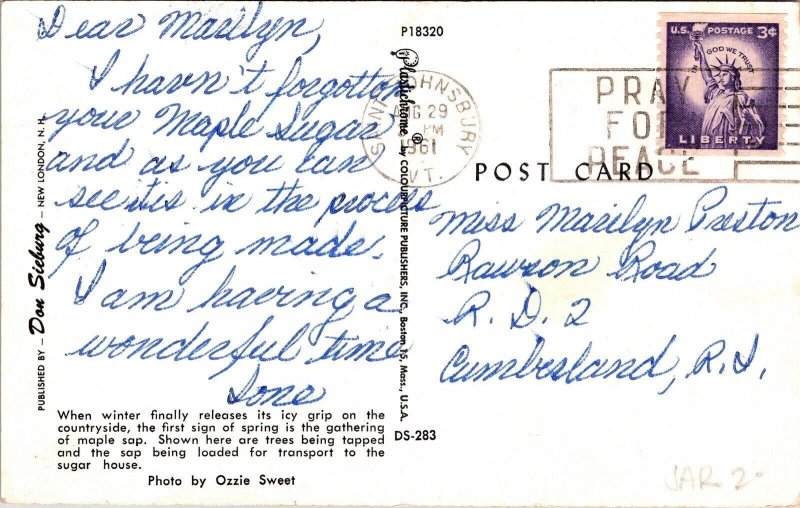 Dear Marilyn,
I havn't forgotton
your Maple Sugar
and as you can
see its in the process
of being made.
I am having a
wonderful time
When winter finally releases its icy grip on the
countryside, the first sign of spring is the gathering
of maple sap. Shown here are trees being tapped
and the sap being loaded for transport to the
sugar house.
Photo by Ozzie Sweet
PUBLISHED BY – Don Sieburg – NEW LONDON, N. H.
P18320
Plastichrome ® by COLOURPICTURE PUBLISHERS, INC., Boston 15, Mass., U.S.A.
DS-283
SAINT JOHNSBURY
29
PM
1961
VT.
PRAY
FOR
PEACE
U.S. POSTAGE 3¢
IN GOD WE TRUST
LIBERTY
POST CARD
Miss Marilyn Preston
Rawson Road
R. D. 2
Cumberland, R.I.
JAR 2-